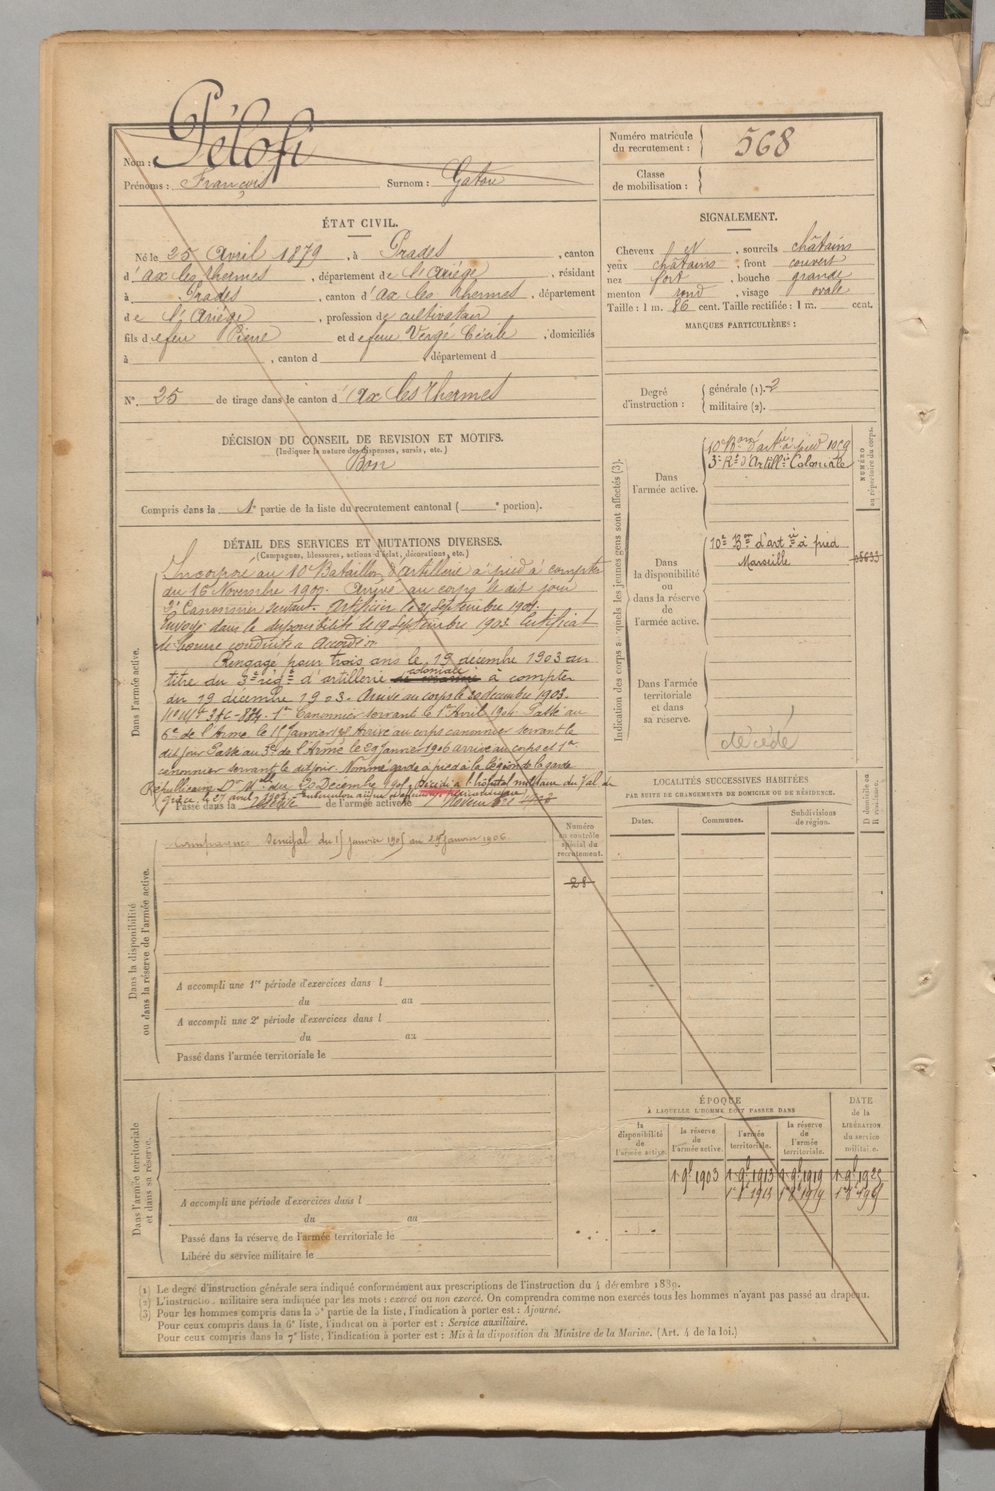 Nom : Pélofi
Prénoms : François Surnom : Gaton
Numéro matricule du recrutement : 568
Classe de mobilisation :
ÉTAT CIVIL.
Né le 25 Avril 1879, à Prades, canton
d'ax les thermes, département de l'Ariége, résidant
à Prades, canton d'ax les thermes, département
de l'Ariége, profession de cultivateur
fils d efeu Pierre et d efeue Vergé Cécile, domiciliés
à , canton d département d
N° 25 de tirage dans le canton d'Ax les Thermes
DÉCISION DU CONSEIL DE REVISION ET MOTIFS.
(Indiquer la nature des dispenses, sursis, etc.)
Bon
Compris dans la 1e partie de la liste du recrutement cantonal ( e portion).
SIGNALEMENT.
Cheveux N , sourcils châtains
yeux châtains , front couvert
nez fort , bouche grande
menton rond , visage ovale
Taille : 1 m. 86 cent. Taille rectifiée : 1 m. cent.
MARQUES PARTICULIÈRES :
Degré d'instruction : générale (1). 2
militaire (2).
Indication des corps auxquels les jeunes gens sont affectés (3).
NUMÉRO au répertoire du corps.
Dans l'armée active.
10e Bon d'artrie à pied
3e Rt d'Artillie Coloniale
Dans la disponibilité ou dans la réserve de l'armée active.
10e Bon d'art ie à pied
Marseille
Dans l'armée territoriale et dans sa réserve.
décédé
DÉTAIL DES SERVICES ET MUTATIONS DIVERSES.
(Campagnes, blessures, actions d'éclat, décorations, etc.)
Dans l'armée active.
Incorporé au 10e Bataillon d'artillerie à pied à compter
du 16 Novembre 1900. Arrivé au corps le dit jour
2e Canonnier servant. Artificier le 21 septembre 1901.
Envoyé dans la disponibilité le 19 Septembre 1903 Certificat
de bonne conduite a accordé
Rengagé pour trois ans le 19 décembre 1903 au
titre du 3e régt d'artillerie de marine coloniale à compter
du 19 décembre 1903. Arrivé au corps le 20 décembre 1903.
1er Canonnier servant le 1er Avril 1904 Passé au
6e de l'Arme le 15 janvier 1905 Arrivé au corps canonnier servant le
dit jour Passé au 3e de l'Arme le 29 Janvier 1906 arrivé au corps et 1er
canonnier servant le dit jour. Nommé garde à pied à la légion de la garde
Républicaine Don Mlle du 20 Décembre 1906, Décédé à l'hôpital militaire du Val de
Grâce, le 27 avril 1907
Passé dans la réserve de l'armée active le 1er Novembre 1903
Dans la disponibilité ou dans la réserve de l'armée active.
Campagne Sénégal du 15 janvier 1905 au 28 janvier 1906
Numéro au contrôle spécial du recrutement.
28
A accompli une 1re période d'exercices dans l
du au
A accompli une 2e période d'exercices dans l
du au
Passé dans l'armée territoriale le
Dans l'armée territoriale et dans sa réserve.
A accompli une période d'exercices dans l
du au
Passé dans la réserve de l'armée territoriale le
Libéré du service militaire le
LOCALITÉS SUCCESSIVES HABITÉES
PAR SUITE DE CHANGEMENTS DE DOMICILE OU DE RÉSIDENCE.
Dates. Communes. Subdivisions de région. D domicile ou R résidence.
ÉPOQUE
À LAQUELLE L'HOMME DOIT PASSER DANS
la disponibilité de l'armée active. la réserve de l'armée active. l'armée territoriale. la réserve de l'armée territoriale. DATE de la LIBÉRATION du service militaire.
1 9bre 1903 1 9bre 1913 1 9bre 1919 1 9bre 1925
(1) Le degré d'instruction générale sera indiqué conformément aux prescriptions de l'instruction du 4 décembre 1889.
(2) L'instruction militaire sera indiquée par les mots : exercé ou non exercé. On comprendra comme non exercés tous les hommes n'ayant pas passé au drapeau.
(3) Pour les hommes compris dans la 5e partie de la liste, l'indication à porter est : Ajourné.
Pour ceux compris dans la 6e liste, l'indication à porter est : Service auxiliaire.
Pour ceux compris dans la 7e liste, l'indication à porter est : Mis à la disposition du Ministre de la Marine. (Art. 4 de la loi.)